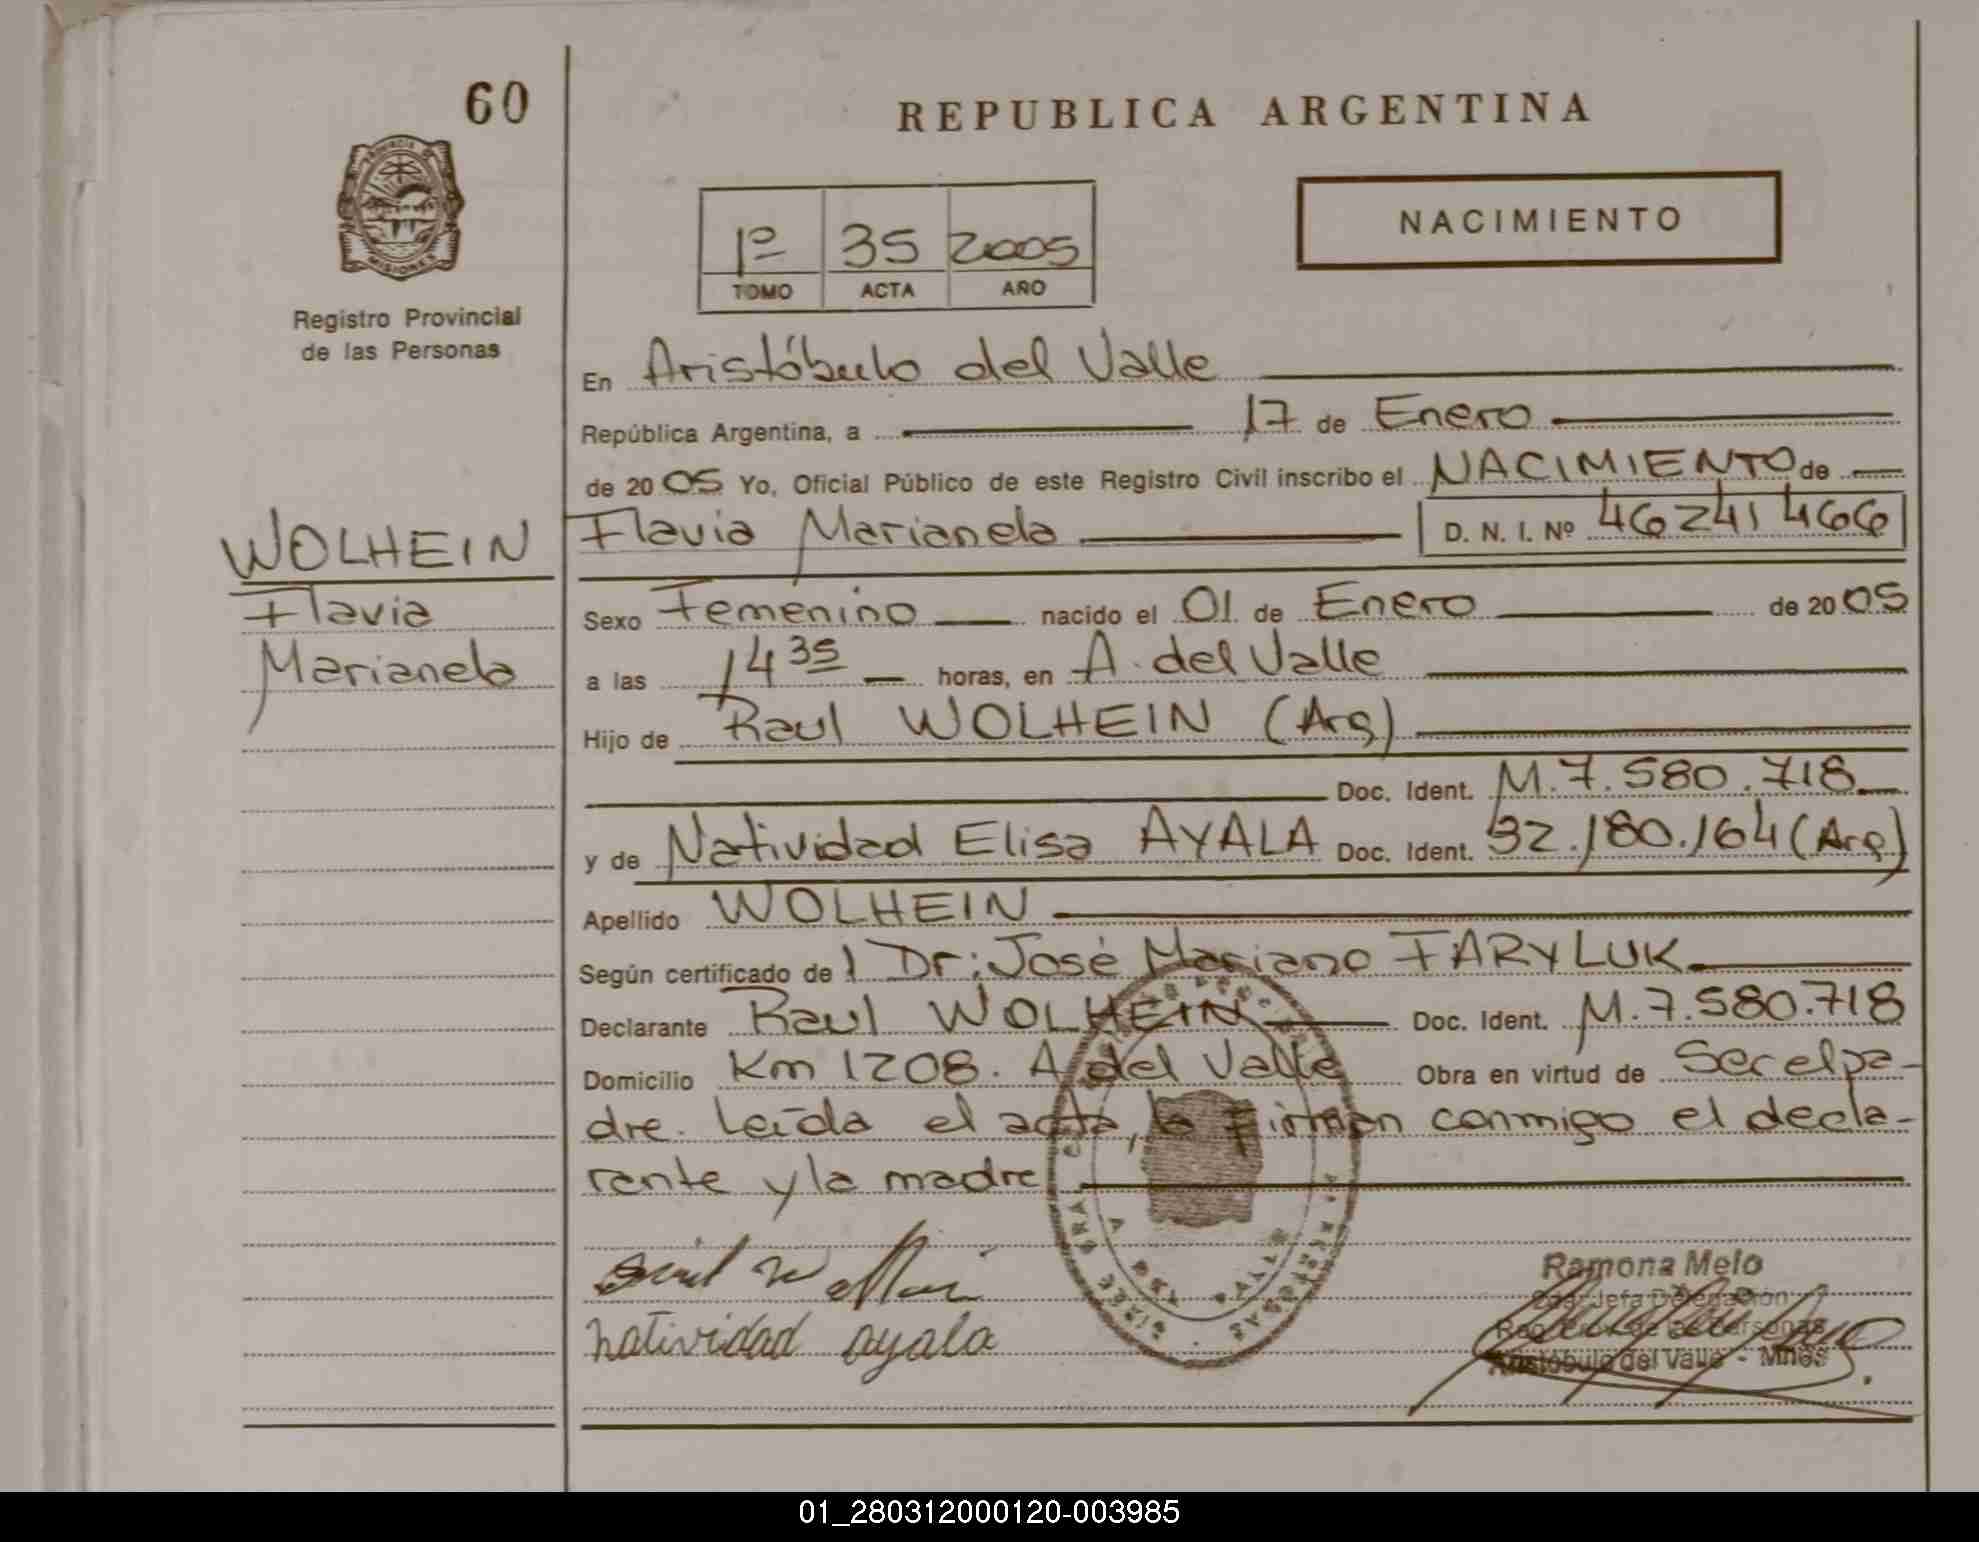 60
REPUBLICA ARGENTINA
PROVINCIA DE
MISIONES
Registro Provincial
de las Personas
NACIMIENTO
1º 35 2005
TOMO ACTA AÑO
En Aristóbulo del Valle
República Argentina, a 17 de Enero
de 2005 Yo, Oficial Público de este Registro Civil inscribo el NACIMIENTO de
WOLHEIN
Flavia
Marianela
Flavia Marianela D. N. I. Nº 46241466
Sexo Femenino nacido el 01 de Enero de 2005
a las 14 35 horas, en A. del Valle
Hijo de Raul WOLHEIN (Arg)
Doc. Ident. M.7.580.718
y de Natividad Elisa AYALA Doc. Ident. 32.180.164 (Arg)
Apellido WOLHEIN
Según certificado de l Dr: José Mariano FARYLUK
Declarante Raul WOLHEIN Doc. Ident. M.7.580.718
Domicilio Km 1208. A. del Valle Obra en virtud de Ser el pa-
dre. Leída el acta, la firman conmigo el decla-
rante y la madre
natividad ayala
Ramona Melo
Jefa Delegación
Aristóbulo del Valle - Mnes
01_280312000120-003985